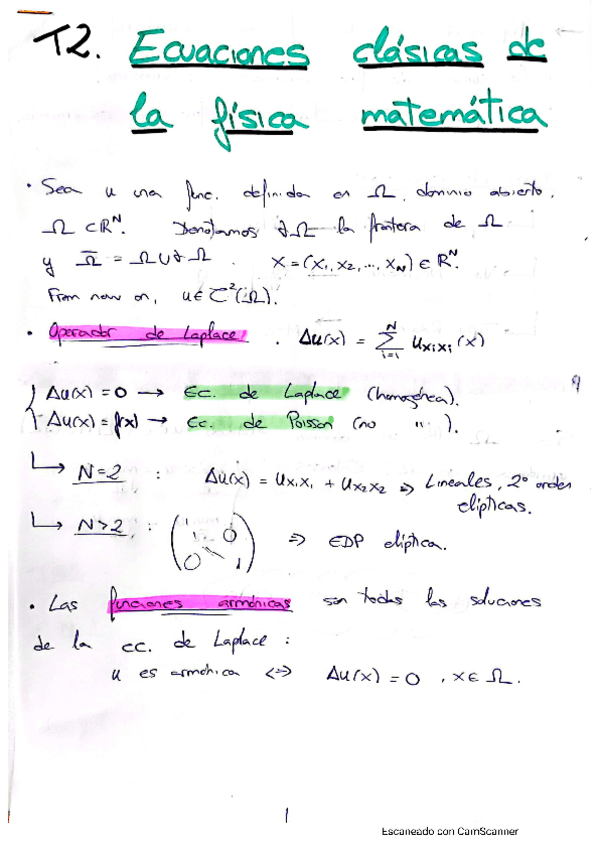 T2. Ecuaciones clásicas de
la física matemática
• Sea u una func. definida en Ω, dominio abierto,
Ω ⊂ ℝᴺ. Denotamos ∂Ω la frontera de Ω
y Ω̅ = Ω ∪ ∂Ω. x = (x₁, x₂, ..., x_N) ∈ ℝᴺ.
From now on, u ∈ C²(Ω).
• Operador de Laplace. Δu(x) = Σ_{i=1}^{N} u_{x_i x_i}(x)
Δu(x) = 0 → Ec. de Laplace (homogénea).
Δu(x) = f(x) → Ec. de Poisson (no " ).
↳ N=2 : Δu(x) = u_{x₁x₁} + u_{x₂x₂} ⇒ Lineales, 2º orden
elípticas.
↳ N>2 : (1 0 0 1) ⇒ EDP elíptica.
• Las funciones armónicas son todas las soluciones
de la ec. de Laplace :
u es armónica <=> Δu(x) = 0, x ∈ Ω.
1
Escaneado con CamScanner